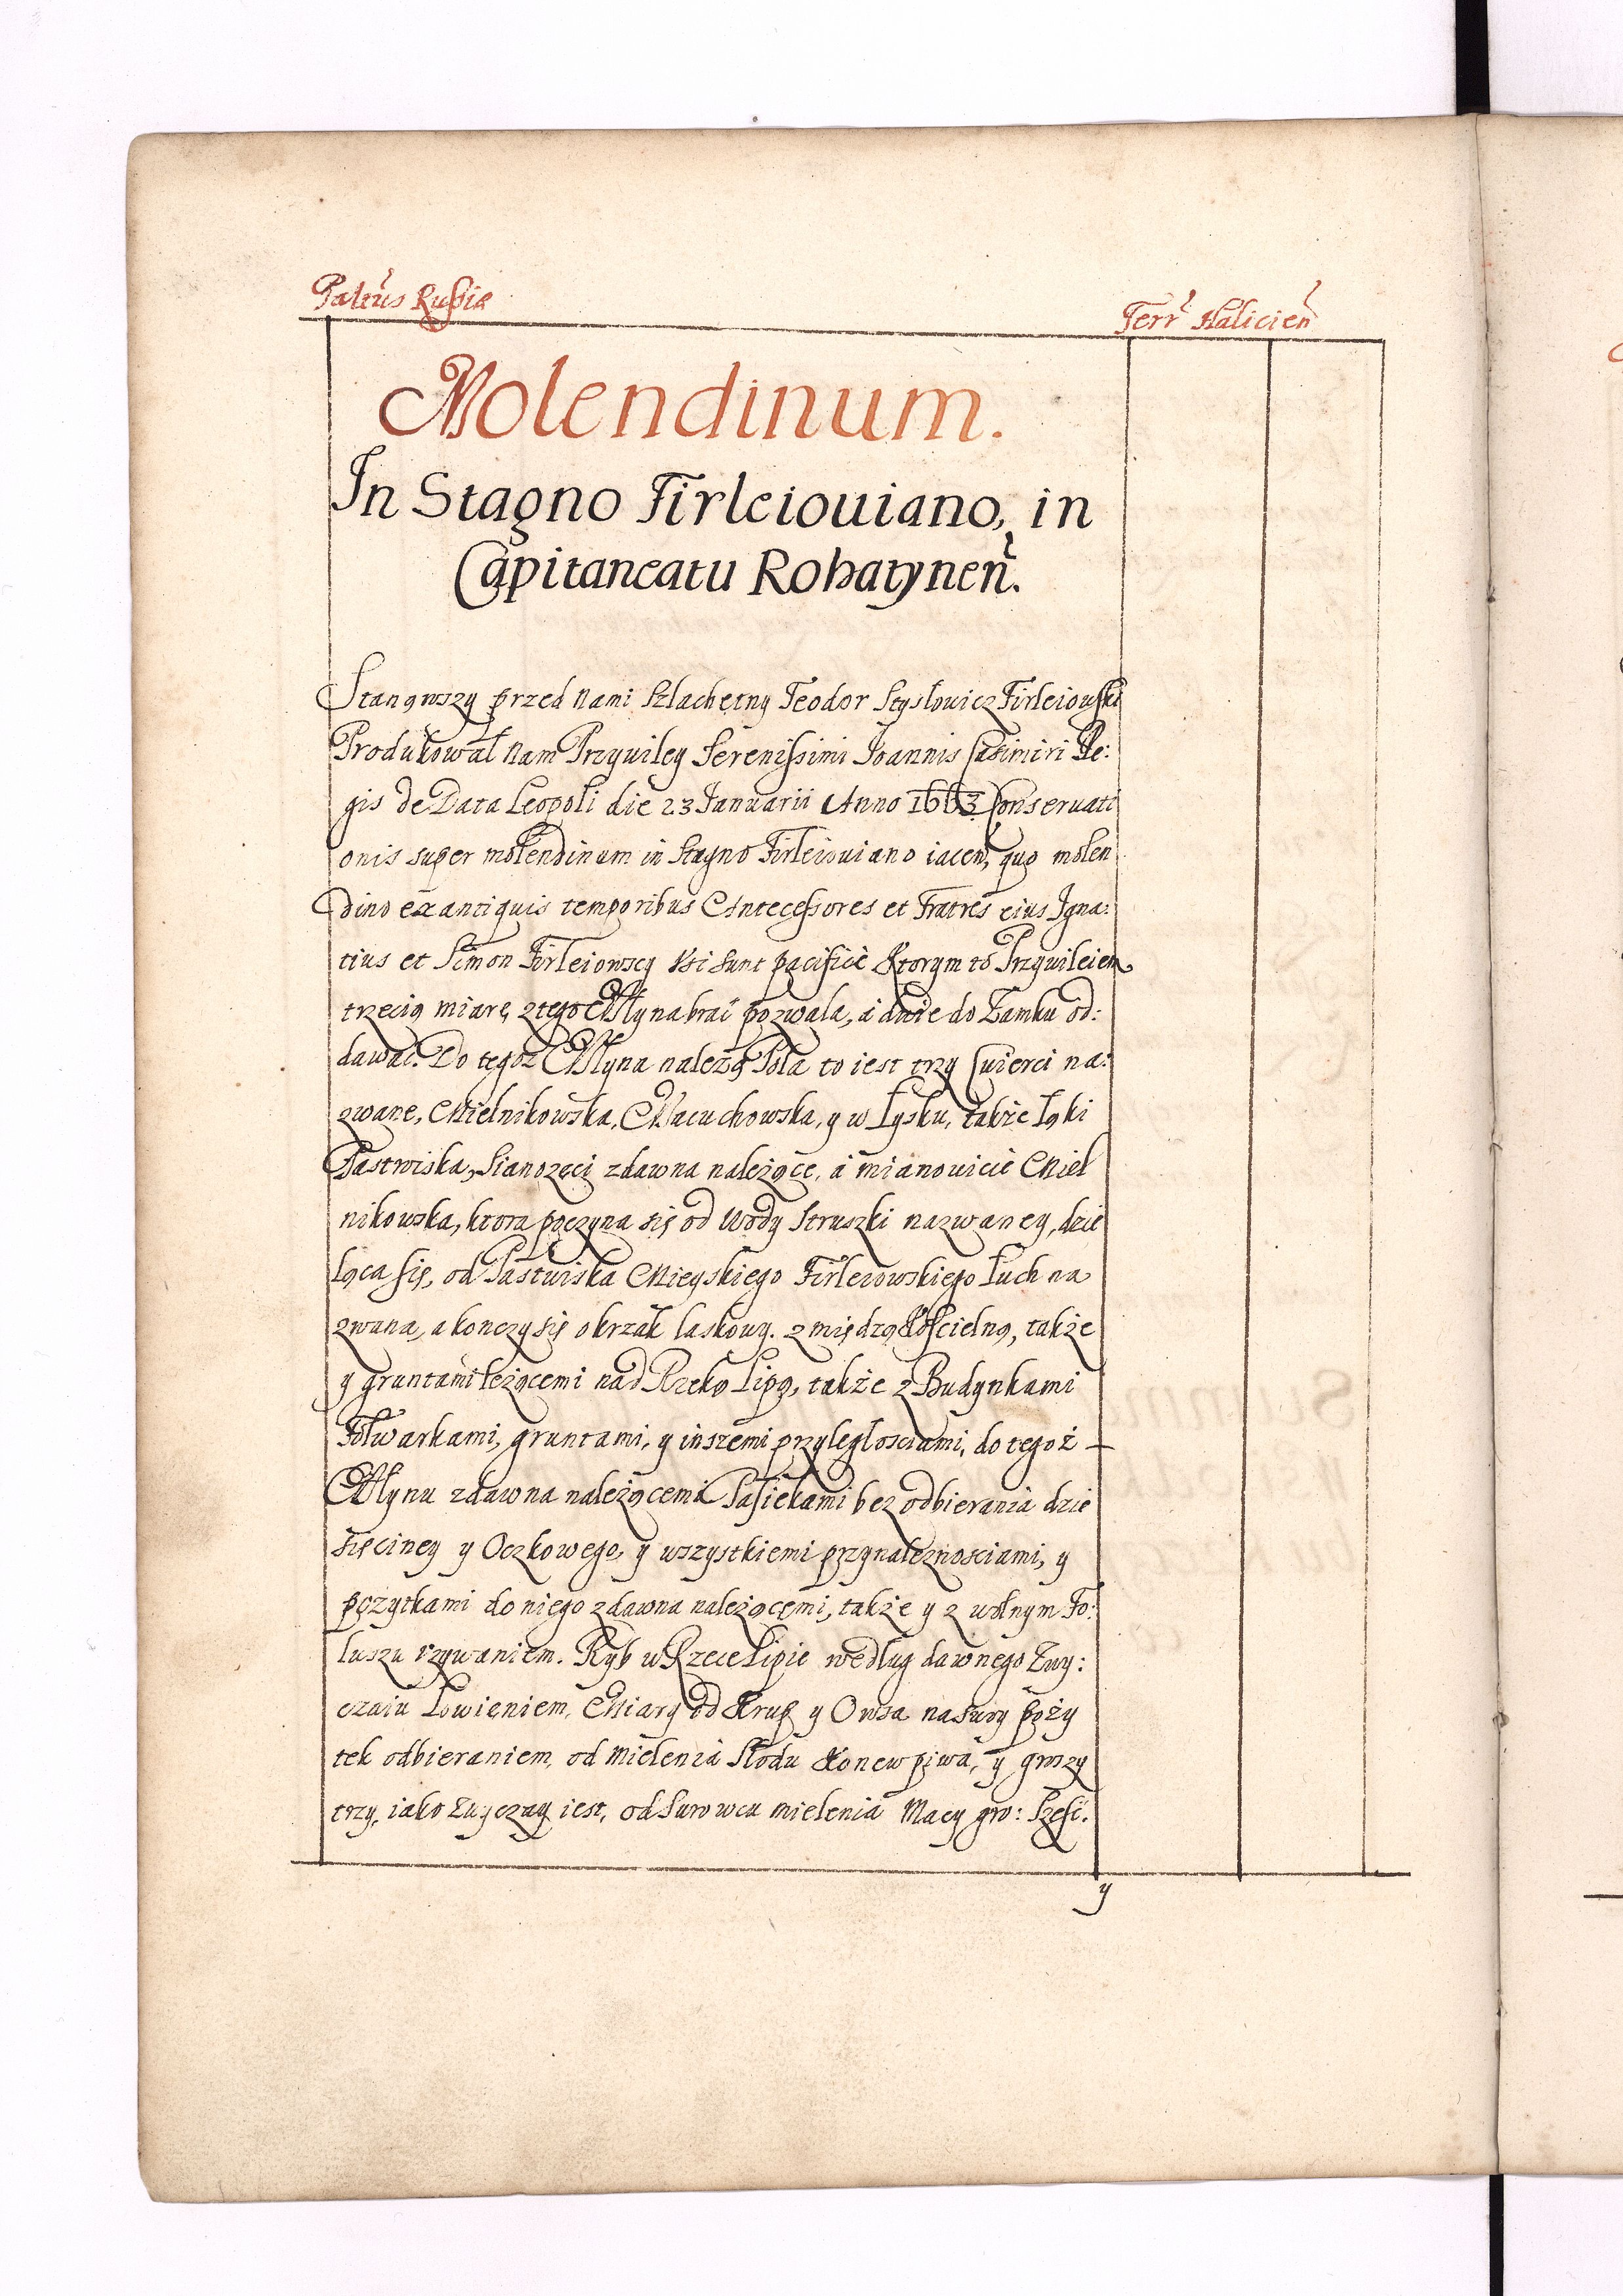 Paltũs Russiæ
Terr̃ Halicieñ
Molendinum.
In Stagno Firleiouiano, in
Capitaneatu Rohatyneñ.
Stanąwszy przed Nami Szlachetny Teodor Stysłowicz Firleiowski
Produkował Nam Przywiley Serenissimi Ioannis Casimiri Re:
gis de Data Leopoli die 23 Ianuarii Anno 1663 Conservati
onis super molendinum in Stagno Firleiouiano iaceñ, quo molen
dino ex antiquis temporibus Antecessores et Fratres eius Igna:
tius et Simon Firleiowscy Vsi sunt pacificè Ktorym to Przywileiem
trzecią miarę z tego Młyna brać pozwala, á dwie do Zamku od:
dawać. Do tegoż Młyna należą Pola to iest trzy Cwierci na:
zwane, Mielnikowska, Macuchowska, y w Łysku, także Łąki
Pastwiska, Sianożęci zdawna należące, á mianowicie Miel
nikowska, ktora poczyna się od Wody Struszki nazwaney, dzie
ląca się, od Pastwiska Mieyskiego Firleiowskiego Łuch na
zwana, a konczy się o krzak laskowy. z miedzą Kościelną, także
y gruntami leżącemi nad Rzeką Lipą, także z Budynkami
Folwarkami, gruntami, y inszemi przyległosciami, do tegoż
Młynu zdawna należącemi Pasiekami bez odbierania dzie
sięciney y Oczkowego, y wszystkiemi przynależnosciami, y
pożytkami do niego zdawna należącemi, także y z wolnym Fo:
luszu vżywaniem. Ryb w Rzece Lipie według dawnego Zwy:
czaiu Łowieniem, Miary od Krup y Owsa na swoy poży
tek odbieraniem, od mielenia Słodu Konew piwa, y groszy
trzy, iako zwyczay iest, od Surowcu mielenia Macy gro: Szesć.
y